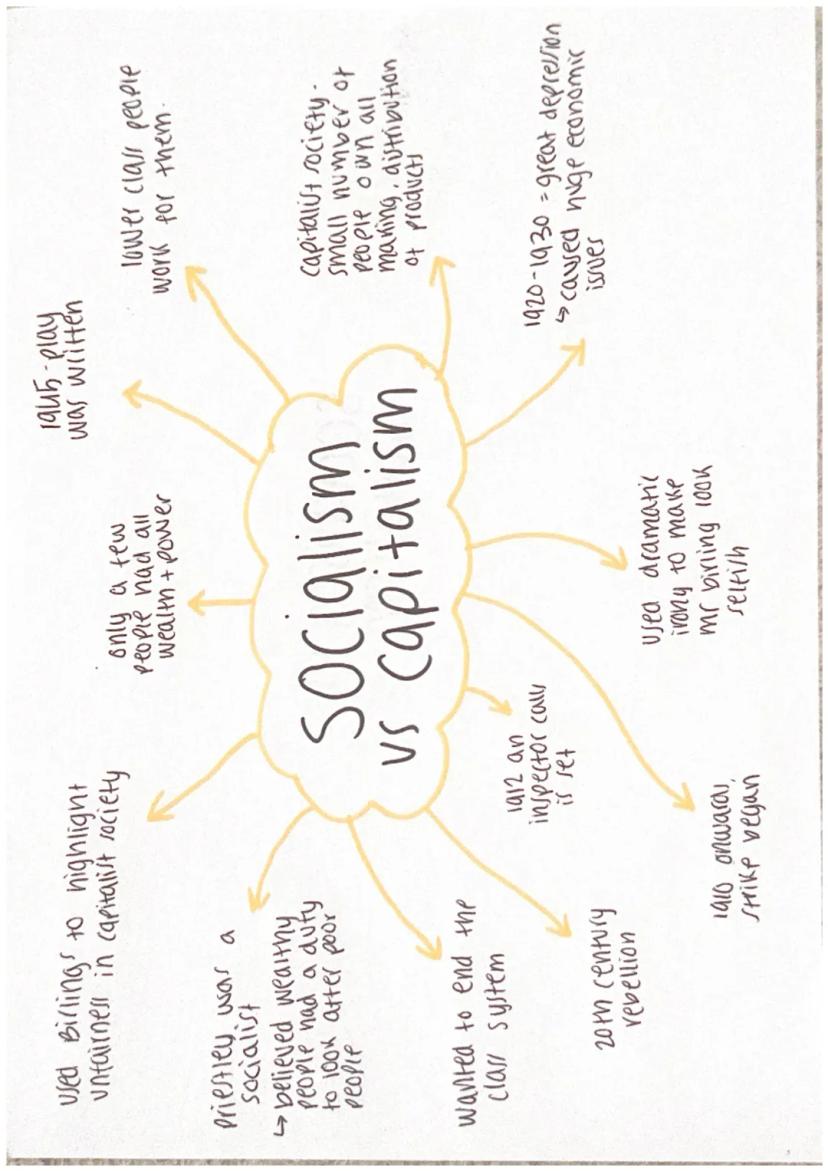 SOCIALISM
vs capitalism
used Birlings to highlight
unfairness in capitalist society
only a few
people had all
wealth + power
1945 - play
was written
lower class people
work for them.
capitalist society -
small number of
people own all
making, distribution
of products
1920-1930 = great depression
↳ caused huge economic
issues
used dramatic
irony to make
mr birling look
selfish
1910 onwards,
strike began
1912 an
inspector calls
is set
20th century
rebellion
wanted to end the
class system
priestley was a
socialist
↳ believed wealthy
people had a duty
to look after poor
people